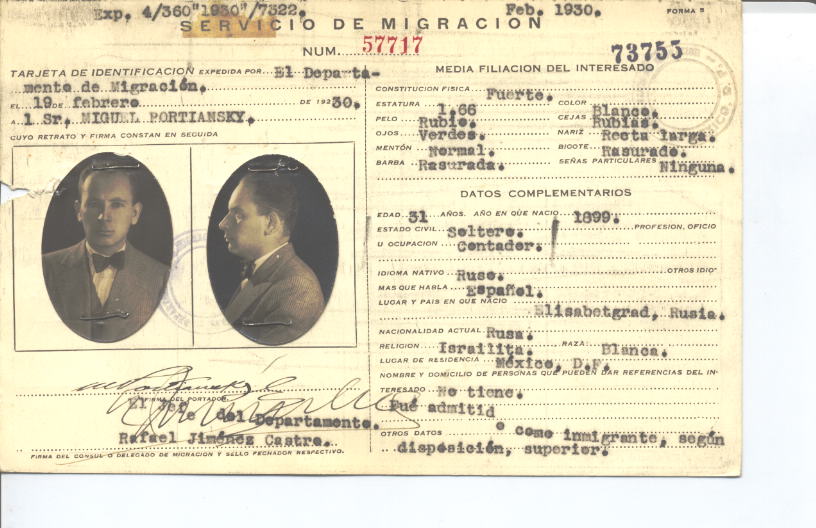 Exp. 4/360"1930"/7322. Feb. 1930. FORMA 5
SERVICIO DE MIGRACION
NUM. 57717
73755
TARJETA DE IDENTIFICACION EXPEDIDA POR El Departa-
mento de Migración.
EL 19 DE febrero DE 1930.
A l Sr. MIGUEL PORTIANSKY.
CUYO RETRATO Y FIRMA CONSTAN EN SEGUIDA
FIRMA DEL PORTADOR
El Jefe del Departamento.
Rafael Jiménez Castro.
FIRMA DEL CONSUL O DELEGADO DE MIGRACION Y SELLO FECHADOR RESPECTIVO.
MEDIA FILIACION DEL INTERESADO
CONSTITUCION FISICA Fuerte.
ESTATURA 1.66 COLOR Blanco.
PELO Rubio. CEJAS Rubias.
OJOS Verdes. NARIZ Recta larga.
MENTÓN Normal. BIGOTE Rasurado.
BARBA Rasurada. SEÑAS PARTICULARES Ninguna.
DATOS COMPLEMENTARIOS
EDAD 31 AÑOS. AÑO EN QUE NACIO 1899.
ESTADO CIVIL Soltero. PROFESION, OFICIO
U OCUPACION Contador.
IDIOMA NATIVO Ruso. OTROS IDIO-
MAS QUE HABLA Español.
LUGAR Y PAIS EN QUE NACIO
Elisabetgrad, Rusia.
NACIONALIDAD ACTUAL Rusa.
RELIGION Israilita. RAZA: Blanca.
LUGAR DE RESIDENCIA México, D.F.
NOMBRE Y DOMICILIO DE PERSONAS QUE PUEDEN DAR REFERENCIAS DEL IN-
TERESADO No tiene.
Fué admitid
OTROS DATOS o como inmigrante, según
disposición, superior.